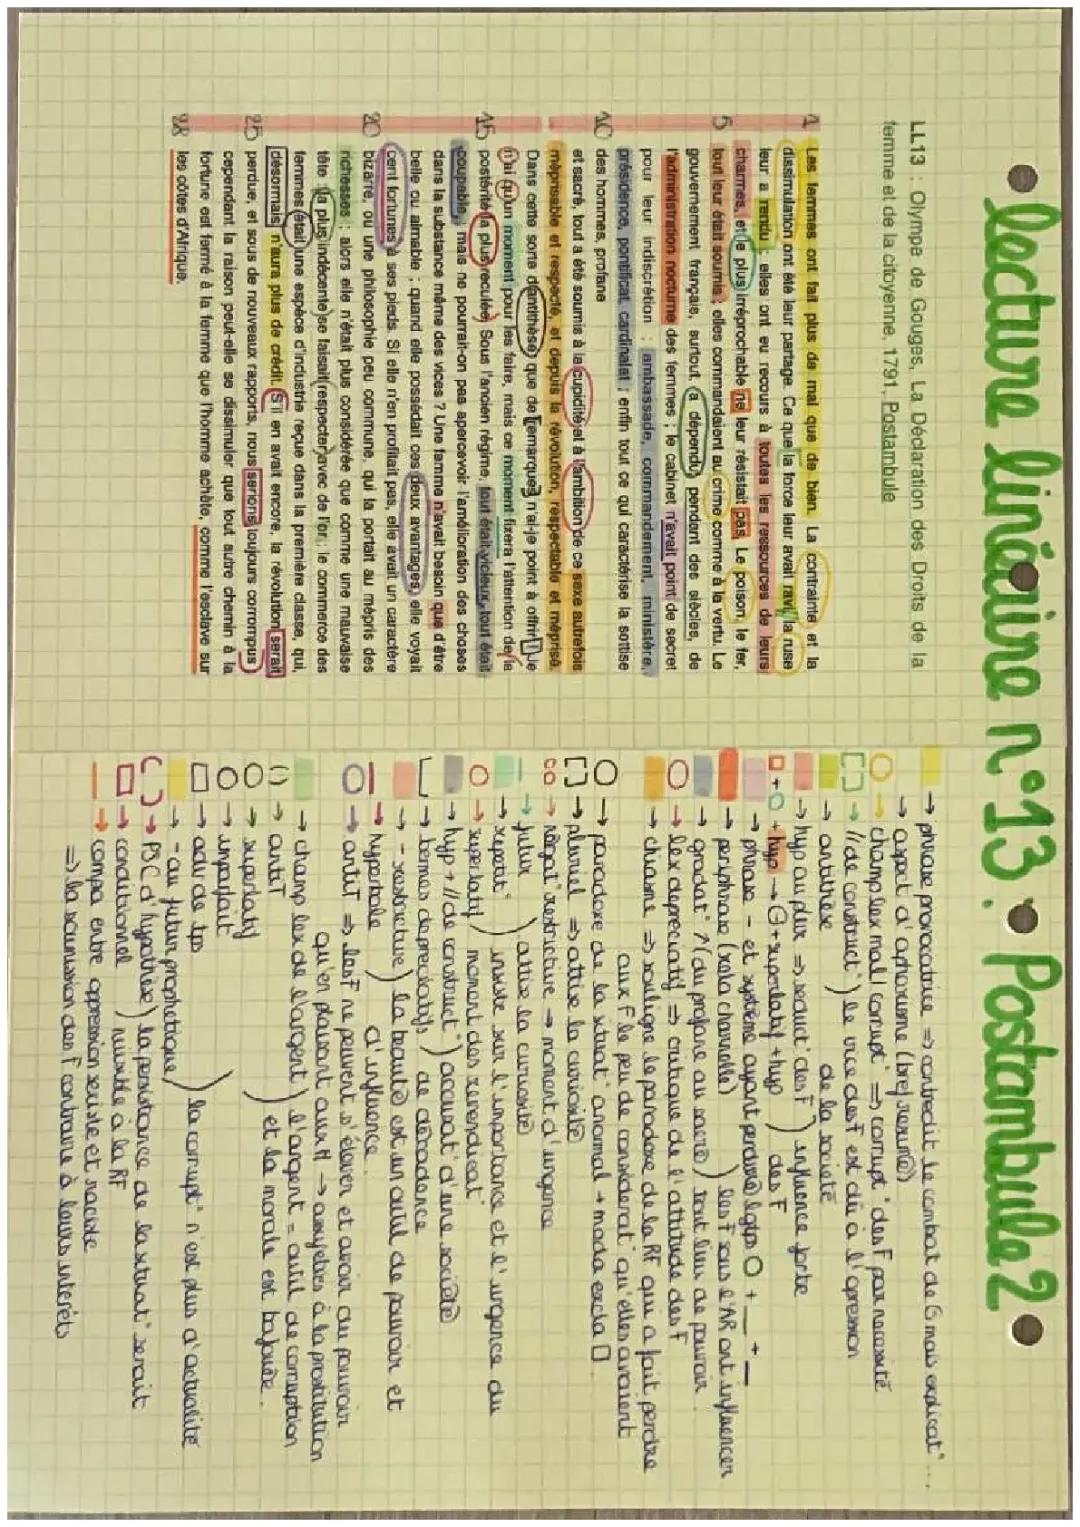 • lecture linéaire n°13 : • Postambule 2 •
LL13 : Olympe de Gouges, La Déclaration des Droits de la
femme et de la citoyenne, 1791, Postambule
1 Les femmes ont fait plus de mal que de bien. La contrainte et la
dissimulation ont été leur partage. Ce que la force leur avait ravi, la ruse
leur a rendu ; elles ont eu recours à toutes les ressources de leurs
charmes, et le plus irréprochable ne leur résistait pas. Le poison, le fer,
5 tout leur était soumis ; elles commandaient au crime comme à la vertu. Le
gouvernement français, surtout, a dépendu, pendant des siècles, de
l'administration nocturne des femmes ; le cabinet n'avait point de secret
pour leur indiscrétion : ambassade, commandement, ministère,
présidence, pontificat, cardinalat ; enfin tout ce qui caractérise la sottise
10 des hommes, profane
et sacré, tout a été soumis à la cupidité et à l'ambition de ce sexe autrefois
méprisable et respecté, et depuis la révolution, respectable et méprisé.
Dans cette sorte d'antithèse, que de remarques n'ai-je point à offrir ! Je
n'ai qu'un moment pour les faire, mais ce moment fixera l'attention de la
15 postérité la plus reculée. Sous l'ancien régime, tout était vicieux, tout était
coupable ; mais ne pourrait-on pas apercevoir l'amélioration des choses
dans la substance même des vices ? Une femme n'avait besoin que d'être
belle ou aimable ; quand elle possédait ces deux avantages, elle voyait
cent fortunes à ses pieds. Si elle n'en profitait pas, elle avait un caractère
20 bizarre, ou une philosophie peu commune, qui la portait au mépris des
richesses ; alors elle n'était plus considérée que comme une mauvaise
tête ; la plus indécente se faisait respecter avec de l'or ; le commerce des
femmes était une espèce d'industrie reçue dans la première classe, qui,
désormais, n'aura plus de crédit. S'il en avait encore, la révolution serait
25 perdue, et sous de nouveaux rapports, nous serions toujours corrompus ;
cependant la raison peut-elle se dissimuler que tout autre chemin à la
fortune est fermé à la femme que l'homme achète, comme l'esclave sur
28 les côtes d'Afrique.
→ phrase provocatrice => contredit le combat de G mais explicat° ...
→ aspect d'aphorisme (bref resumé)
→ champ lex mal / corrupt° => corrupt° des F par necessité
→ // de construct° ) le vice des F est dû à l'opression
→ antithèse de la société
→ hyp au plur => seduct° des F ) influence forte
+ hyp → G + superlatif + hyp des F
→ phrase - et système ayant perduré lgtps O + _ + _
→ periphrase (rela charnelle) ) les F sous l'AR ont influencer
→ gradat° ↗ (du profane au sacré) tout lieu de pouvoir
→ lex depreciatif => critique de l'attitude des F
→ chiasme => souligne le paradoxe de la RF qui a fait perdre
aux F le peu de considerat° qu'elles avaient
→ paradoxe de la situat° anormal + moda excla □
→ pluriel => attise la curiosité
→ négat° restrictive → moment d'urgence
→ futur ) attire la curiosité
→ repetit° ) insiste sur l'importance et l'urgence du
→ superlatif ) moment des revendicat°
→ hyp + // de construct° ) accusat° d'une société
→ termes depreciatifs ) de décadence
→ - restrictive ) la beauté est un outil de pouvoir et
→ hyperbole d'influence
→ antiT => les F ne peuvent s'élever et avoir du pouvoir
qu'en plaisant aux H → assujetties à la prostitution
→ champ lex de l'argent ) l'argent = outil de corruption
→ antiT ) et la morale est bafouée.
→ superlatif
→ imparfait
→ adv de tps
→ - au futur prophétique ) la corrupt° n'est plus d'actualité
→ PSC d'hypothèse ) la persistance de la situat° serait
→ conditionnel ) nuisible à la RF
→ compa entre oppression sexiste et raciste
=> la soumission des F contraire à leurs interêts